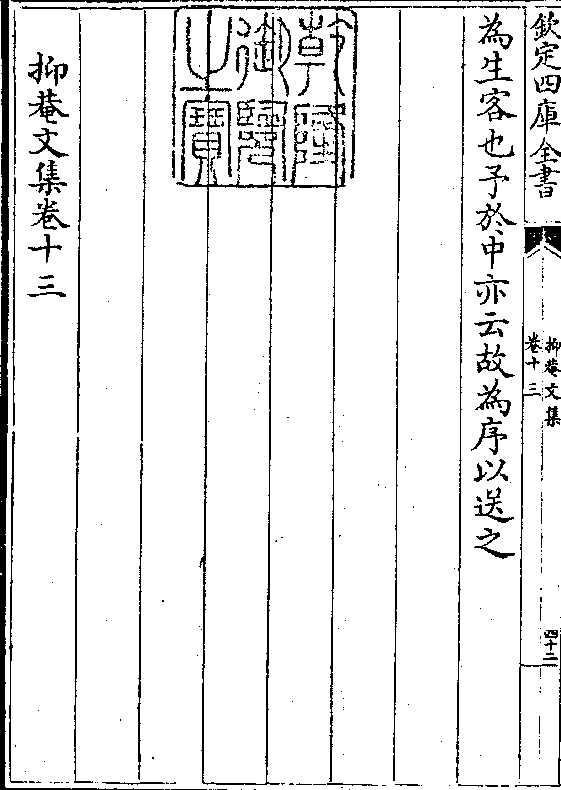 欽定四庫全書
抑菴文集
卷十三
四十二
為生客也予於中亦云故為序以送之
乾隆
御覽
之寶
抑菴文集卷十三